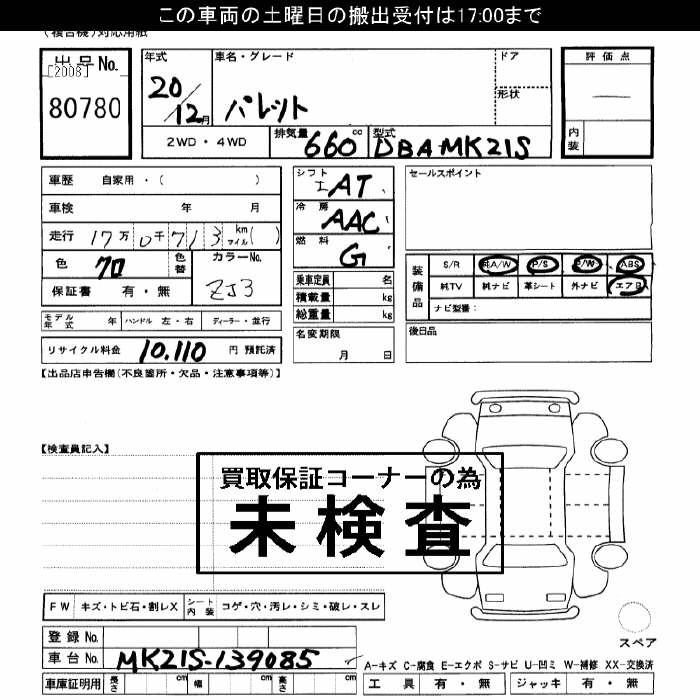 この車両の土曜日の搬出受付は17:00まで
(複合機)対応用紙
出品No.
[2008]
80780
年式
20/12月
車名・グレード
パレット
ドア
形状
評価点
―
内装
2WD・4WD
排気量 660 cc
型式 DBA-MK21S
車歴 自家用・( )
車検 年 月
走行 17万0千713 km マイル( )
色 クロ
色替
カラーNo. ZJ3
保証書 有・無
モデル年式 年
ハンドル 左・右
ディーラー・並行
リサイクル料金 10,110 円 預託済
シフト AT
冷房 AAC
燃料 G
乗車定員 名
積載量 kg
総重量 kg
名変期限
月 日
セールスポイント
装備品
S/R 純A/W P/S P/W ABS
純TV 純ナビ 革シート 外ナビ エアB
ナビ型番:
後日品
【出品店申告欄(不良箇所・欠品・注意事項等)】
【検査員記入】
買取保証コーナーの為
未検査
FW キズ・トビ石・割レX
シート内装 コゲ・穴・汚レ・シミ・破レ・スレ
登録No.
車台No. MK21S-139085
車庫証明用 長さ cm 幅 cm 高さ cm
スペア
A-キズ C-腐食 E-エクボ S-サビ U-凹ミ W-補修 XX-交換済
工具 有・無 ジャッキ 有・無